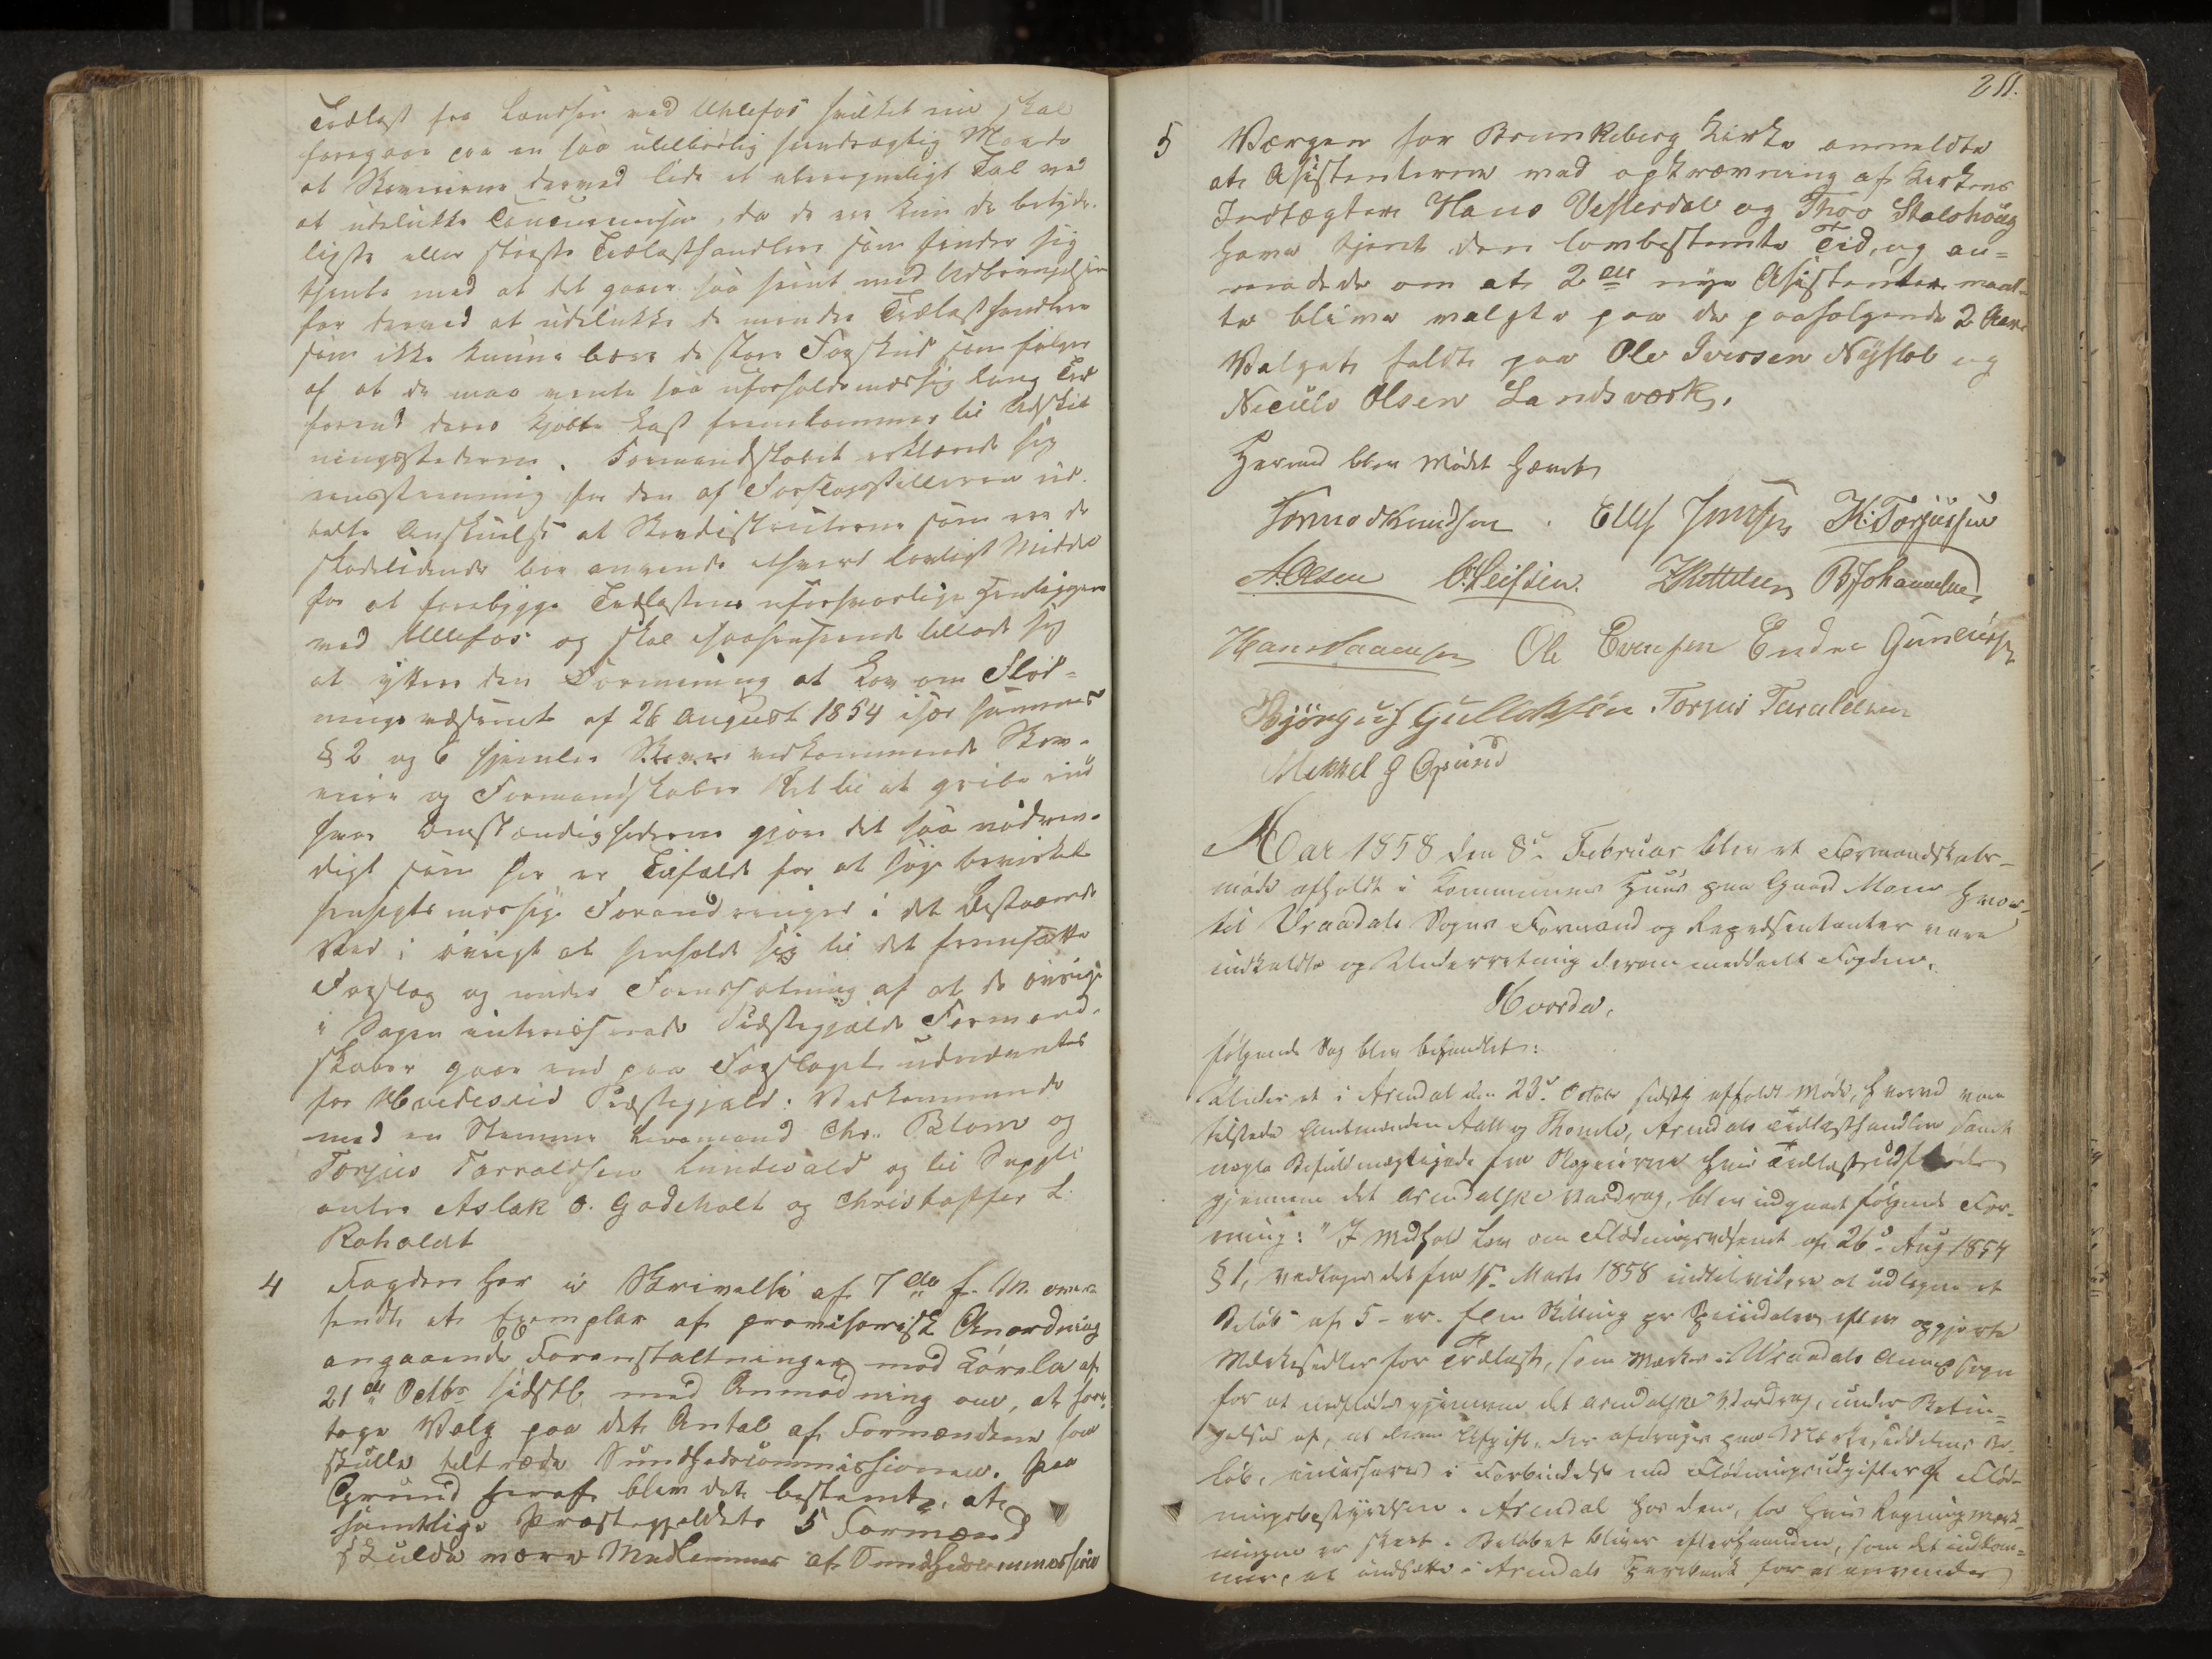 Trælast fra Landsen ved Uhlefos hvilket nu skal
foregaae paa en saa utilbørlig seendrægtig Maade
at Skoveierne derved lide et ubereqneligt Tab ved
at udelukke Concurrencen, da de ere kun de betyde-
ligste eller største Trælasthandlere som finder sig
tjente med at det gaaer saa seent med Udbringelsen
for derved at udelukke de mendre Trælasthandlere
som ikke kunne bære de store Forskud som følger
af at de maa vente saa uforholdsmæssig lang Tid
førend deres kjøbte Last fremkommer til Udskib
ningsstederne. Formandskabet erklærede sig
eensstemmig for den af Forslagsstilleren ud-
talte Anskuelse at Skovdistricterne som ere de
skadelidende bør anvende ethvert lovligt Middel
for at forebygge Trælastens uforsvarlige Henliggen
ved Ullefos og skal i saahenseende tillade sig
at yttre den Formening at Lov om Flød-
ningsvæsenet af 26 August 1854 især sammes
§ 2 og 6 hjemler vedkommende Skov-
eiere og Formandskaber Ret til at gribe ind
hvor Omstændighederne gjøre det saa nødven-
digt som her er Tilfældet for at søge bevirket
hensigtsmæssige Forandringer i det Bestaaende
Ved i øvrigt at henholde sig til det fremsatte
Forslag og under Forudsætning af at de øvrige
i Sagen interesserede Præstegjælds Formand-
skaber gaae ind paa Forslaget udnævntes
for Hvideseid Præstegjæld: Vedkommende
med en Stemme Lensmand Chr. Blom og
Torjus Tarraldsen Lundevald og til Suppli
anter Aslak O. Godeholt og Christopffer L.
Roholdt
4 Fogden har i Skrivelse af 7de f. M. over-
sendt et Exemplar af provisorisk Anordning
angaaende Foranstaltninger mod Cholera af
21de Octbr sidstl. med Anmodning om, at fore-
tage Valg paa det Antal af Formændene som
skulle tiltræde Sundhedscommissionen. Paa
Grund heraf blev det bestemt, at
samtlige Præstegjeldets 5 Formænd
skulde være Medlemmer af Sundhedscommissionen
211.
5 Værgen for Brunkeberg Kirke anmeldte
at Asistenterne ved opkrævning af Kirkens
Indtægter Hans Vesterdal og Thor Stalshaug
have tjent den lovbestemte Tid, og an-
modede om at 2de nye Asistenter maat-
te blive valgte paa de paafølgende 2 Aar.
Valget faldt paa Ole Iversen Nystøl og
Niculs Olsen Landsværk.
Hermed blev Mødet hævet,
Tormod Knudsen. Ellef Jensen K. Torjussen
A Olsen O. Leifsen. Z Kettilsen B Johannesen
Hans Ole Evensen Endre Gunleiksen
Bjørguf Gulleiksen. Torjus Taraldsen
Mikkel G Opsund
Aar 1858 den 8de Februar blev et Formandskabs-
møde afholdt i Kommunens Huus paa Gaard Moen hvor-
til Vraadals Sogns Formænd og Repræsentanter vare
indkaldte og Underretning derom meddeelt Fogden.
Hvorda,
følgende Sag blev behandlet:
Under et i Arendal den 23de October sidstl. afholdt Møde, hvorved vare
tilstede Amtmanden Aall og Thomle, Arendals Trælasthandlere samt
nogle Befuldmægtigede fra Sognene hvis Trælast udflødes
gjennem det Arendalske Vasdrag, blev indgaaet følgende For-
ening: "I Medhold Lov om Flødningsvæsenet af 26de Aug 1854
§ 1, vedtages det fra 1ste Marts 1858 indtil videre at udlegne et
Beløb af 5 - er. fem Skilling pr Speciedaler efter opgjorte
Mærkesedler for Trælast, som Mærkes i Vraadals Annexsogn
for at nedflødes gjennem det arendalske Vasdrag, under Betin-
gelse af, at denne Afgift, der afdrages paa Mærkeseddelens Be-
løb, inkasseres i Forbindelse med Flødningsudgifter af Fløt-
ningsbestyrelsen i Arendal hos dem, for hvis Regning Mærk-
ningen er skeet. Beløbet bliver efterhaanden, som det indkom-
mer, at indsætte i Arendals Sparebank for at anvendes